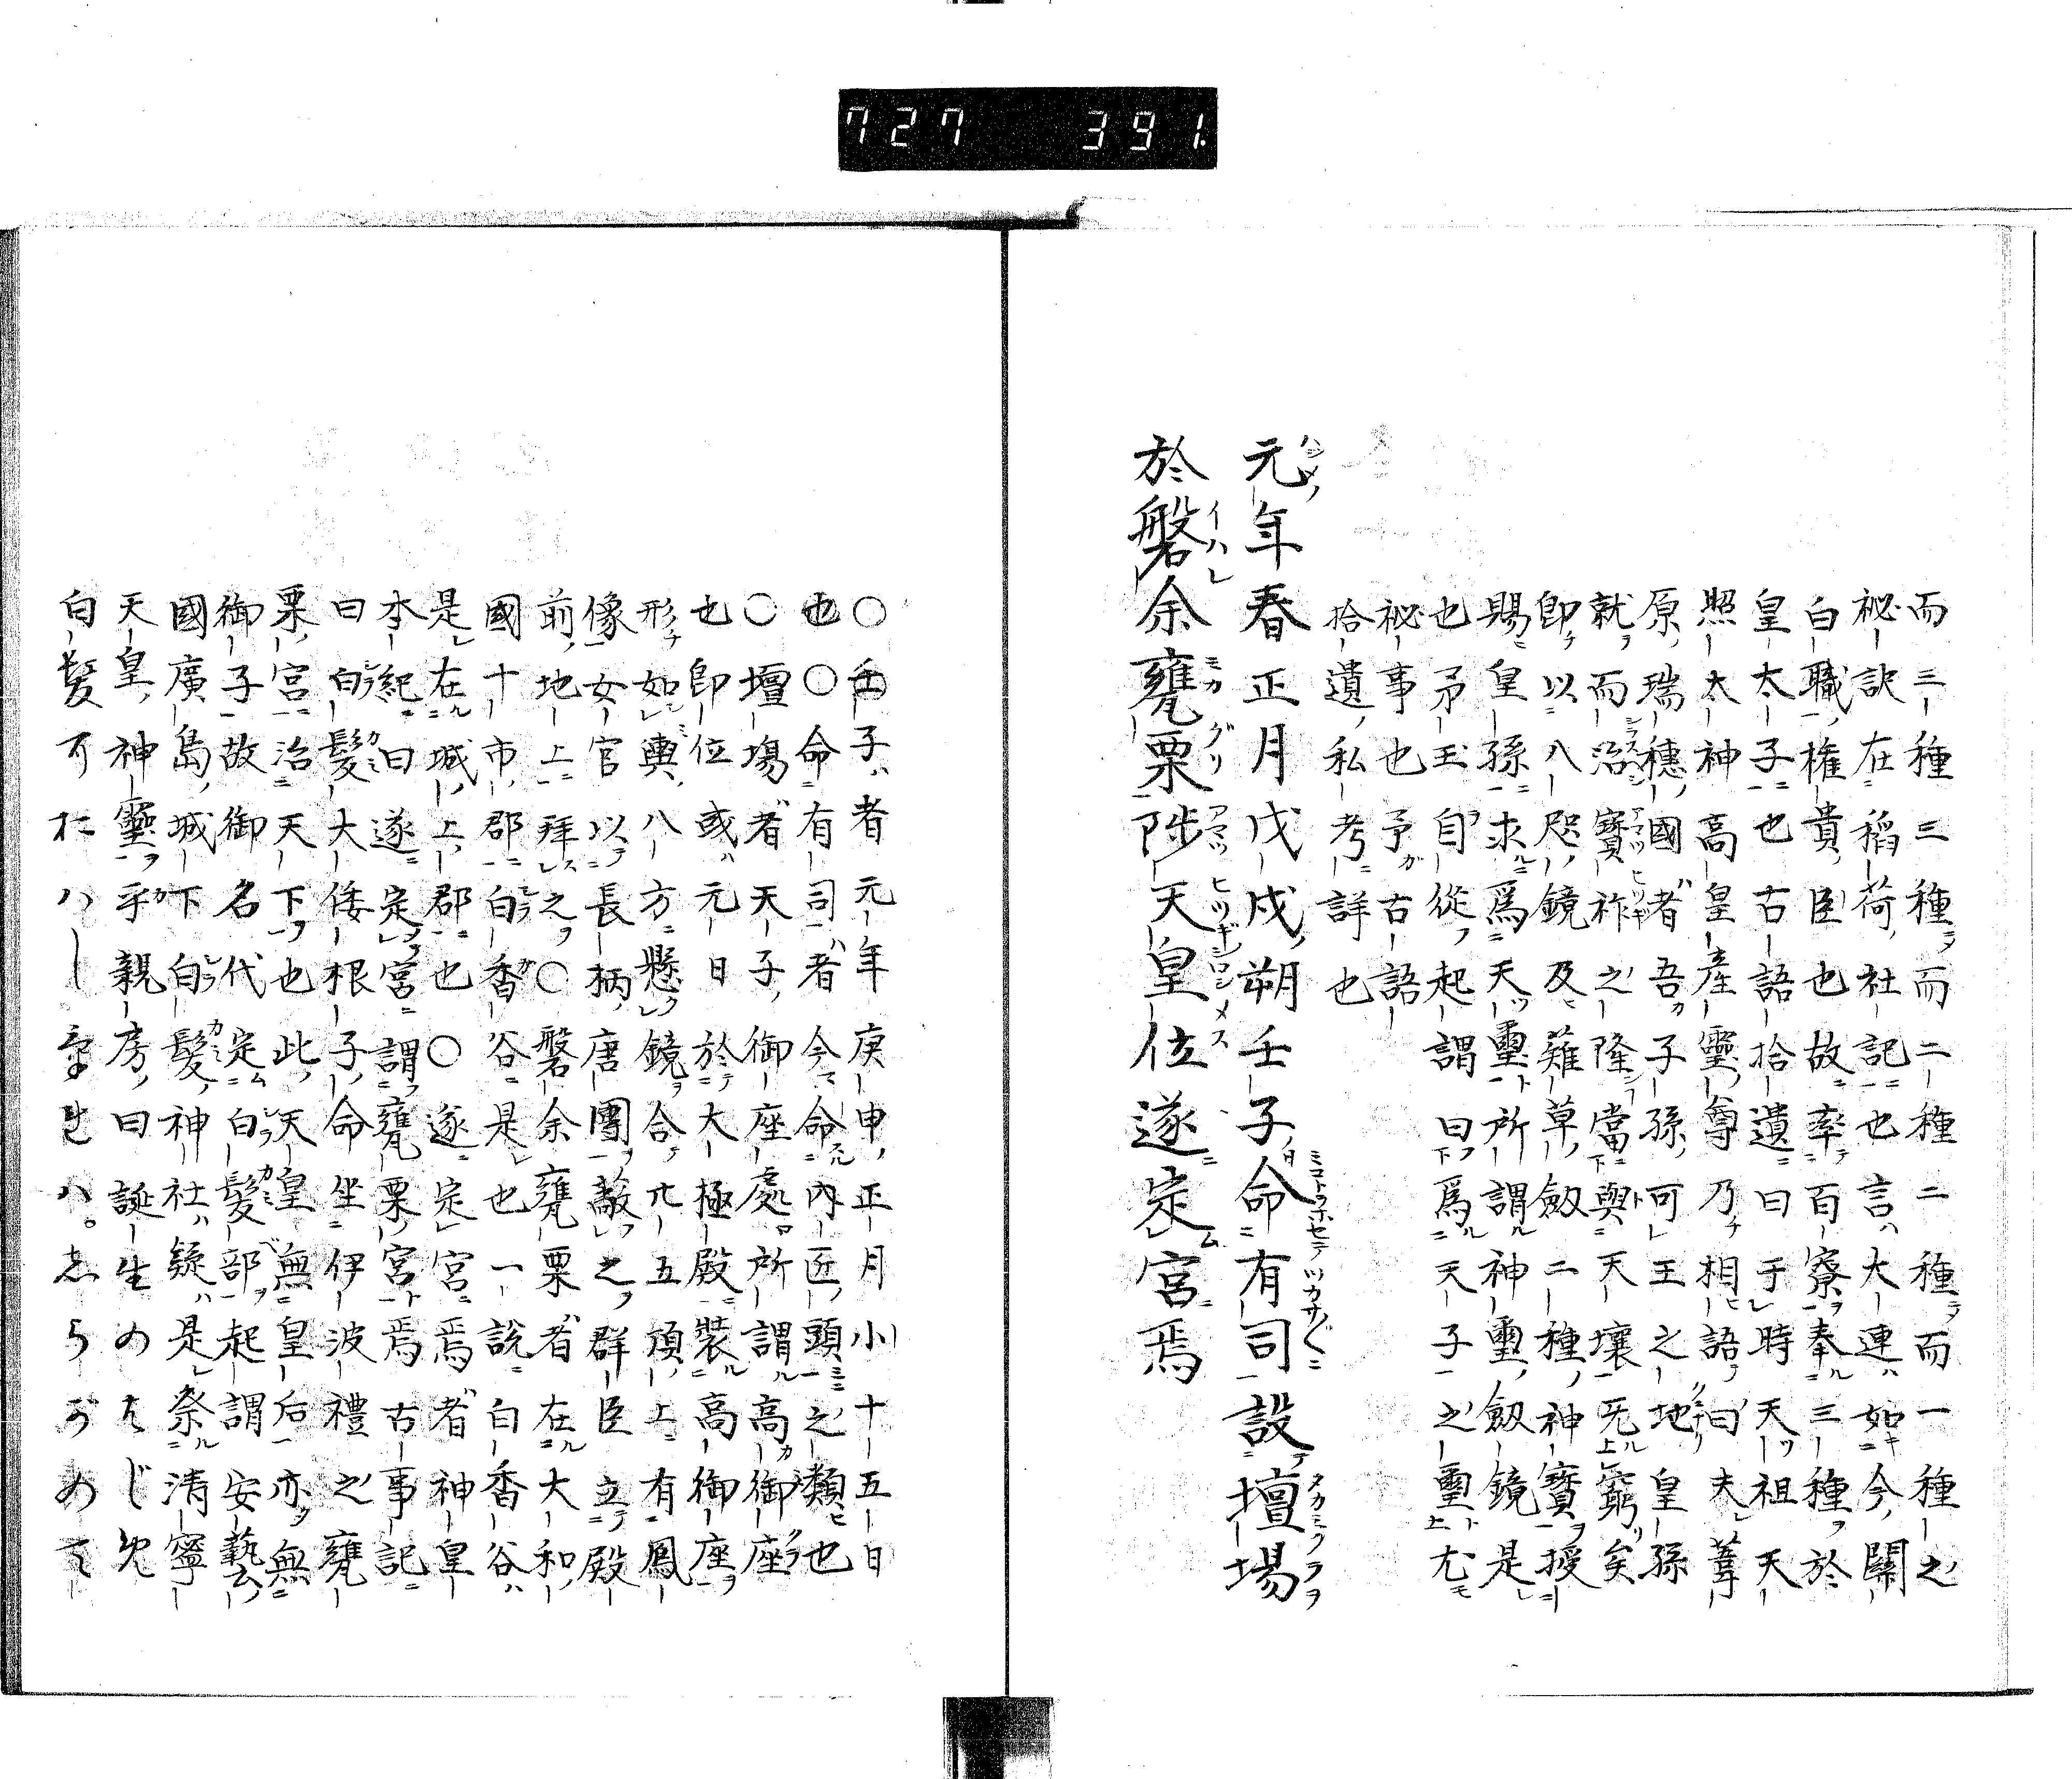 727 391.
而三種三種而二種二種而一種之
祕訣在稻荷社記也言大連如今關
白職權貴臣也故率百寮奉三種於
皇太子也古語拾遺曰于時天祖天
照太神高皇産靈尊乃相語曰夫葦
原瑞穗國者吾子孫可王之地皇孫
就而治寶祚之隆當與天壤无窮矣
卽以八咫鏡及薙草劔二種神寶授
賜皇孫求爲天璽所謂神璽劔鏡是
也矛玉自從起謂曰爲天子之璽尤
祕事也予古語
拾遺私考詳也
元年春正月戊戌朔壬子命有司設壇場
於磐余甕栗陟天皇位遂定宮焉
○壬子者元年庚申正月小十五日
也○命有司者今命內匠頭之類也
○壇場者天子御座處所謂高御座
也卽位或元日於大極殿裝高御座
形如輿八方懸鏡合卅五頂上有鳳
像女官以長柄唐團蔽之群臣立殿
前地上拜之○磐余甕栗者在大和
國十市郡白香谷是也一說白香谷
是在城上郡也○遂定宮焉者神皇
本紀曰遂定宮謂甕栗宮焉古事記
曰白髮大倭根子命坐伊波禮之甕
栗宮治天下也此天皇無皇后亦無
御子故御名代定白髮部起謂安藝
國廣島城下白髮神社疑是祭清寧
天皇神靈乎親房曰誕生のはじめ
白髮